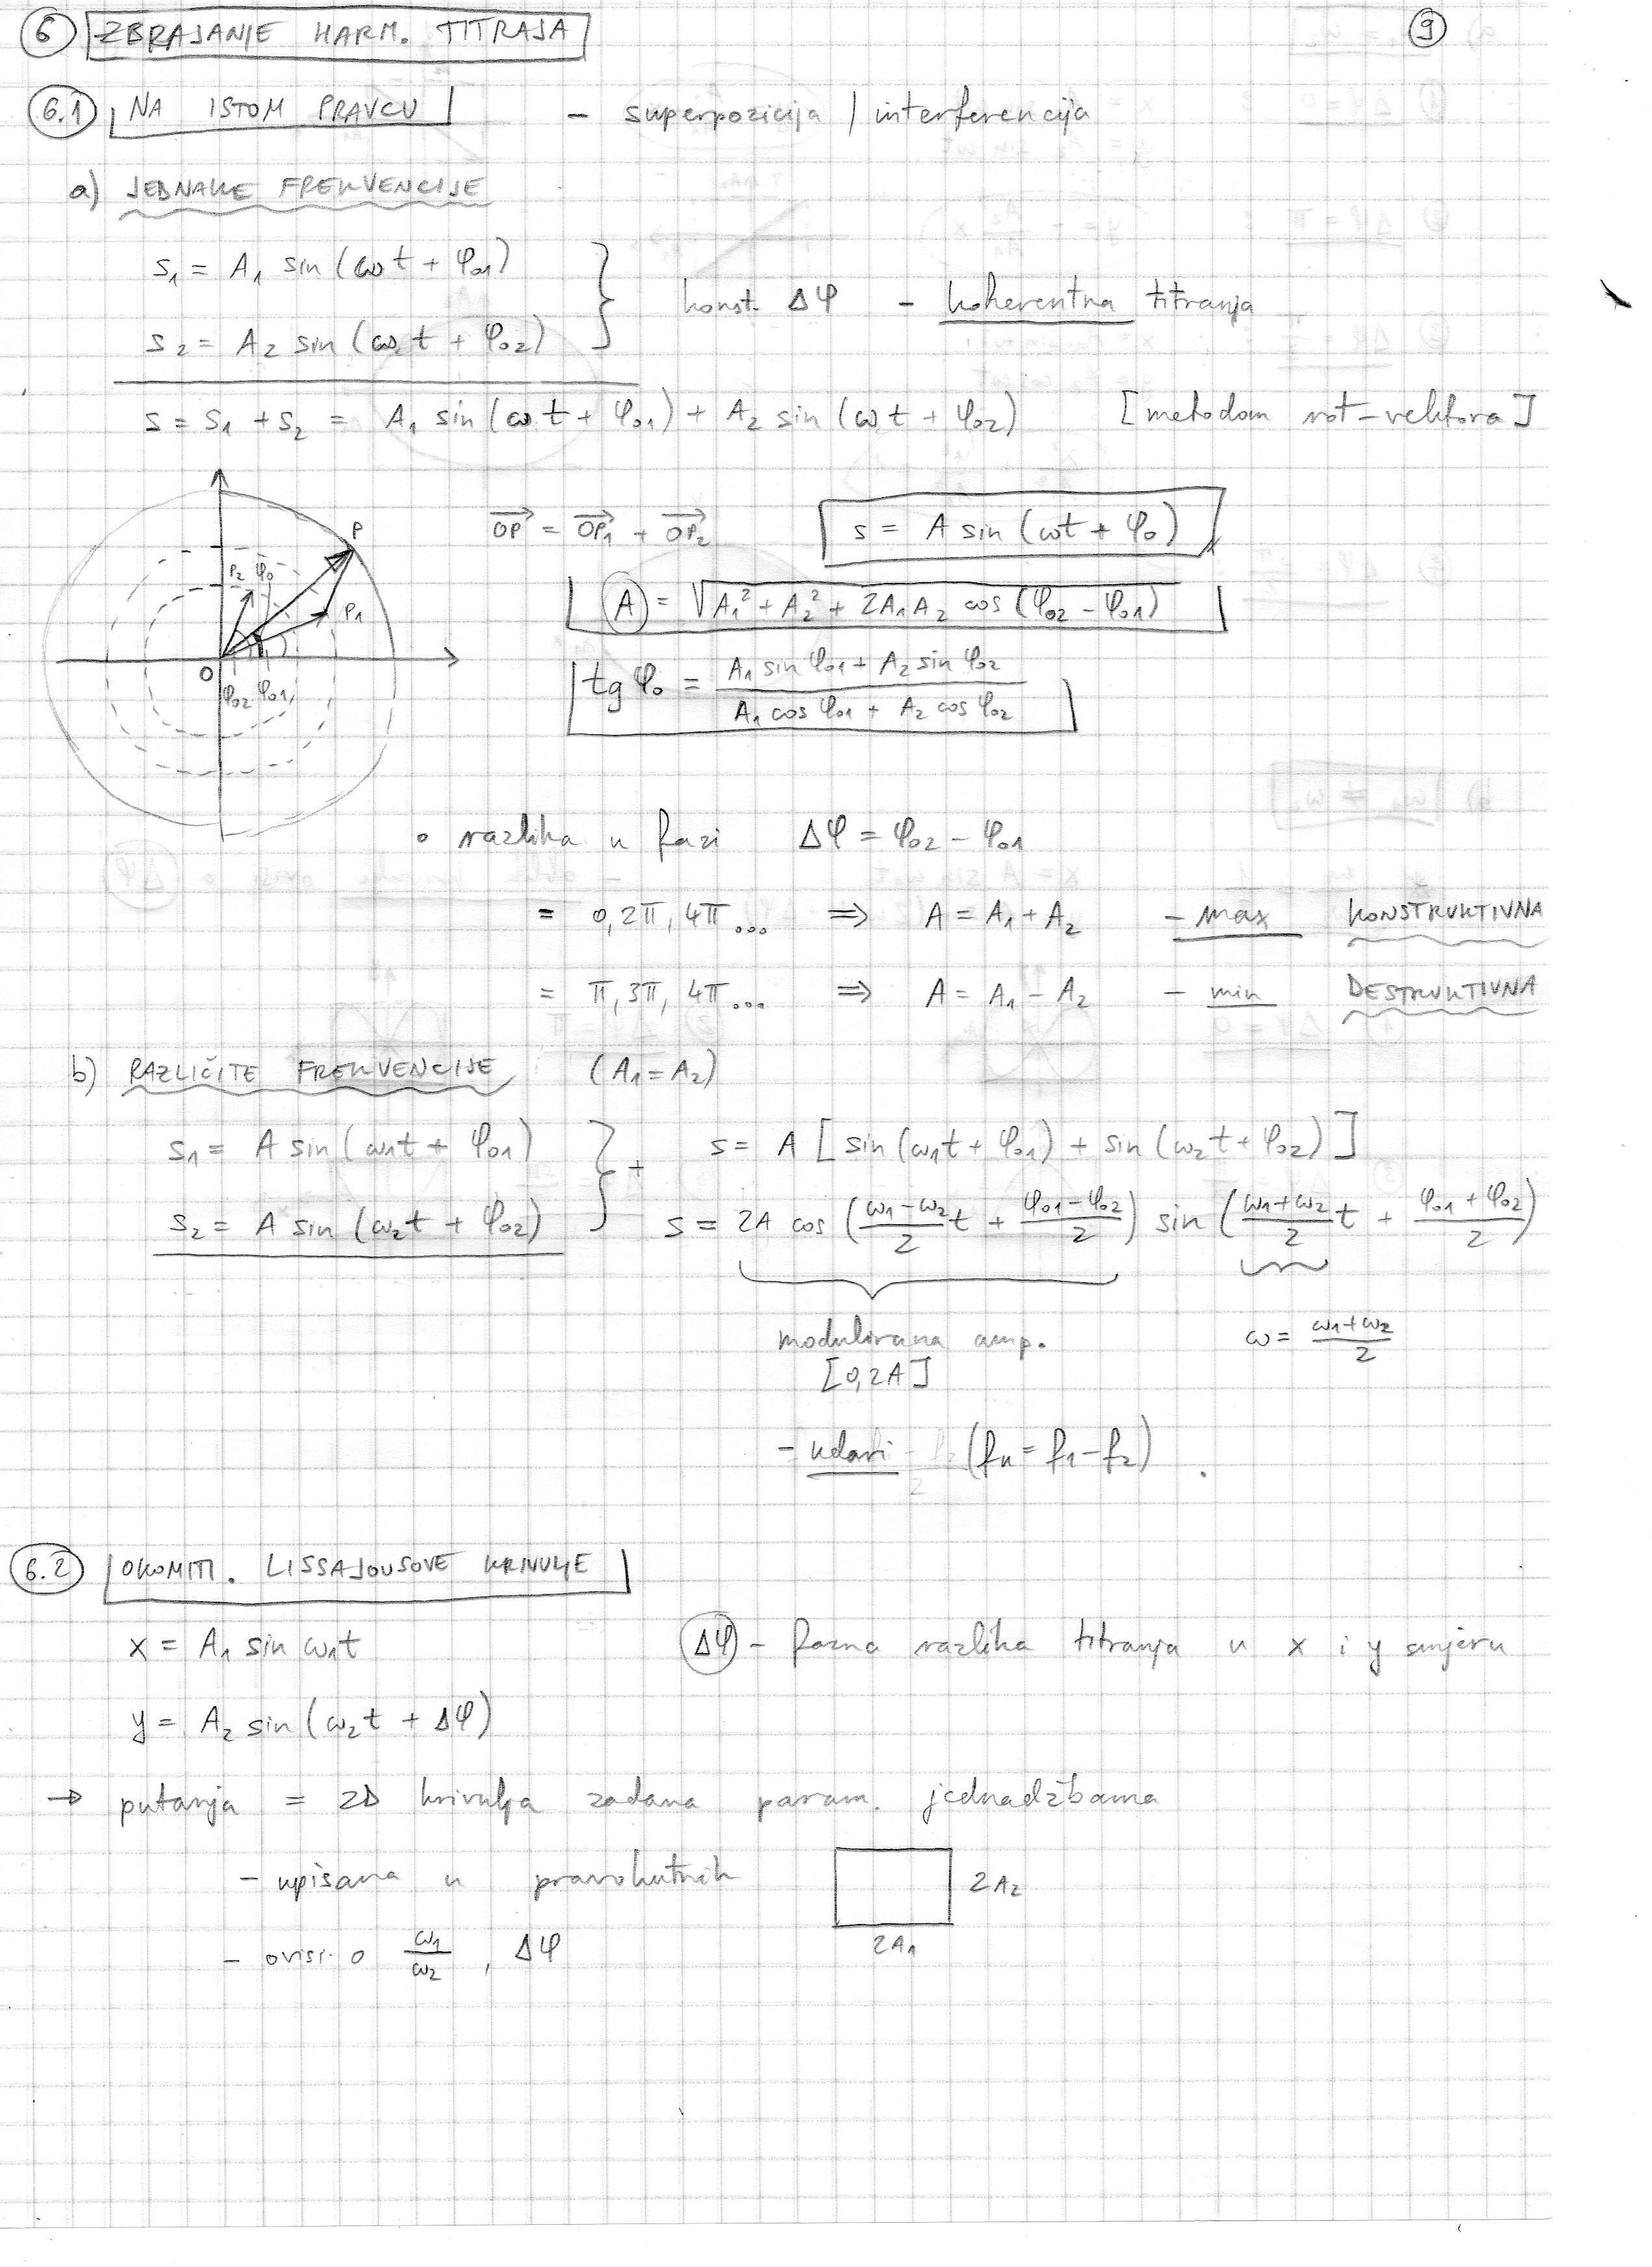 6 ZBRAJANJE HARM. TITRAJA 9
6.1 NA ISTOM PRAVCU - superpozicija / interferencija
a) JEDNAKE FREKVENCIJE
s₁ = A₁ sin (ωt + φ₀₁)
konst. Δφ - koherentna titranja
s₂ = A₂ sin (ωt + φ₀₂)
s = s₁ + s₂ = A₁ sin (ωt + φ₀₁) + A₂ sin (ωt + φ₀₂) [metodom rot-vektora]
OP⃗ = OP₁⃗ + OP₂⃗ s = A sin (ωt + φ₀)
P
P₂ φ₀
P₁
O
φ₀₂ φ₀₁
A = √(A₁² + A₂² + 2A₁A₂ cos (φ₀₂ - φ₀₁))
tg φ₀ = (A₁ sin φ₀₁ + A₂ sin φ₀₂) / (A₁ cos φ₀₁ + A₂ cos φ₀₂)
∘ razlika u fazi Δφ = φ₀₂ - φ₀₁
= 0, 2π, 4π... ⇒ A = A₁ + A₂ - max KONSTRUKTIVNA
= π, 3π, 4π... ⇒ A = A₁ - A₂ - min DESTRUKTIVNA
b) RAZLIČITE FREKVENCIJE (A₁ = A₂)
s₁ = A sin (ω₁t + φ₀₁) } + s = A [sin (ω₁t + φ₀₁) + sin (ω₂t + φ₀₂)]
s₂ = A sin (ω₂t + φ₀₂) s = 2A cos ((ω₁-ω₂)/2 t + (φ₀₁-φ₀₂)/2) sin ((ω₁+ω₂)/2 t + (φ₀₁+φ₀₂)/2)
modulirana amp. ω = (ω₁+ω₂)/2
[0, 2A]
- udari (fu = f₁ - f₂)
6.2 OKOMITI. LISSAJOUSOVE KRIVULJE
x = A₁ sin ω₁t Δφ - fazna razlika titranja u x i y smjeru
y = A₂ sin (ω₂t + Δφ)
→ putanja = 2D krivulja zadana param. jednadžbama
- upisana u pravokutnik 2A₂
2A₁
- ovisi o ω₁/ω₂, Δφ